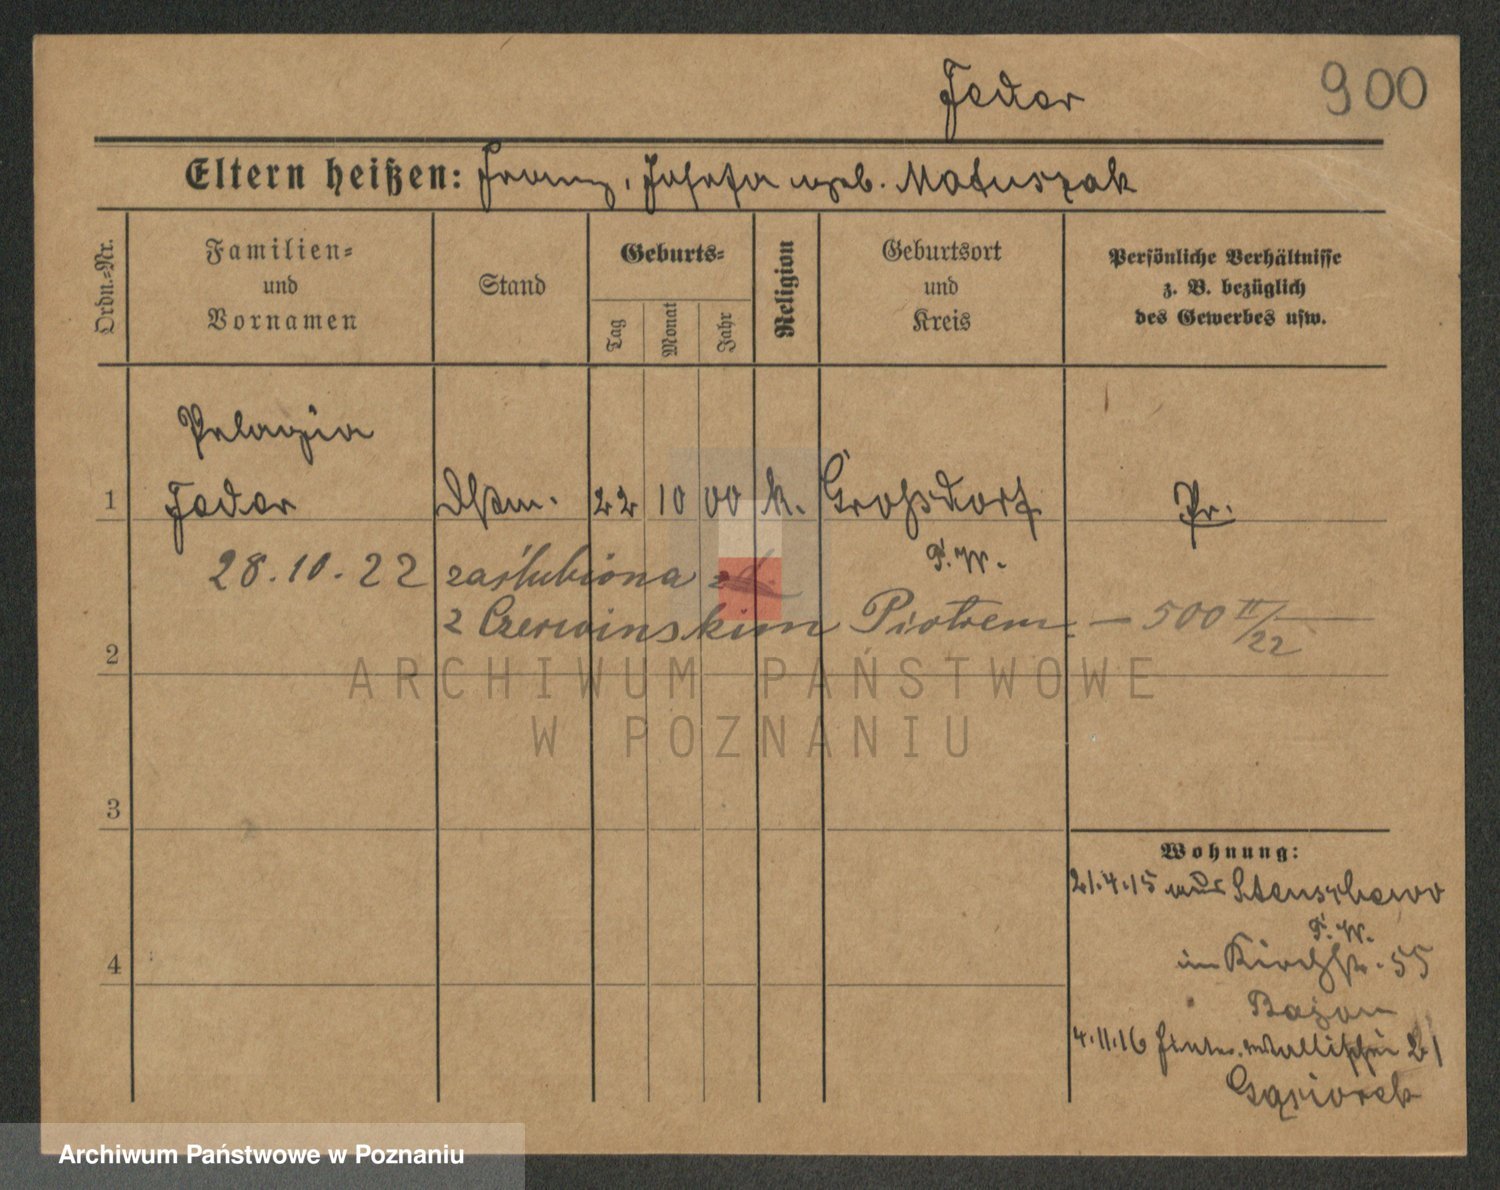 Feder
900
Eltern heißen: Franz, Josefa geb. Matuszak
Ordn.=Nr.
Familien=
und
Vornamen
Stand
Geburts=
Tag
Monat
Jahr
Religion
Geburtsort
und
Kreis
Persönliche Verhältnisse
z. B. bezüglich
des Gewerbes usw.
Pelagia
1 Feder Dstm. 22 10 00 k. Großdorf Pr.
P. W.
28.10.22 zaślubiona
z Czerwinskim Piotrem. — 500 II/22
2
3
4
Wohnung:
21.4.15 aus Stenschewo
P. W.
im Kirchstr. 55
4.11.16 Hinter Wallischei 21
Gąsiorek
ARCHIWUM PAŃSTWOWE
W POZNANIU
Archiwum Państwowe w Poznaniu